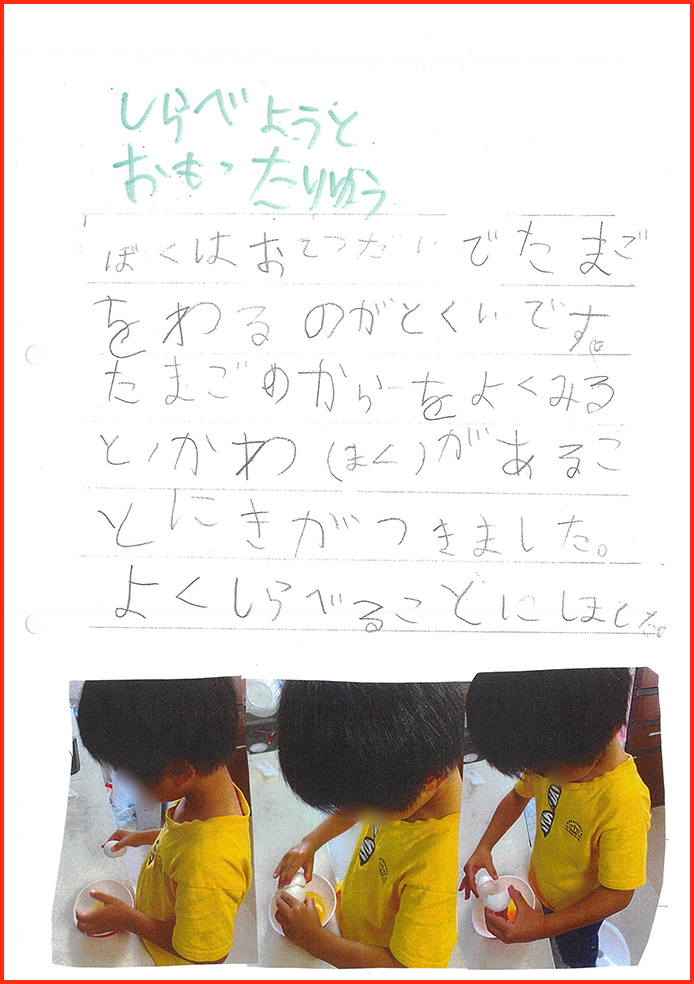 しらべようと
おもったりゆう
ぼくはおてつだいでたまご
をわるのがとくいです。
たまごのからをよくみる
と、かわ(まく)があるこ
とにきがつきました。
よくしらべることにしました。